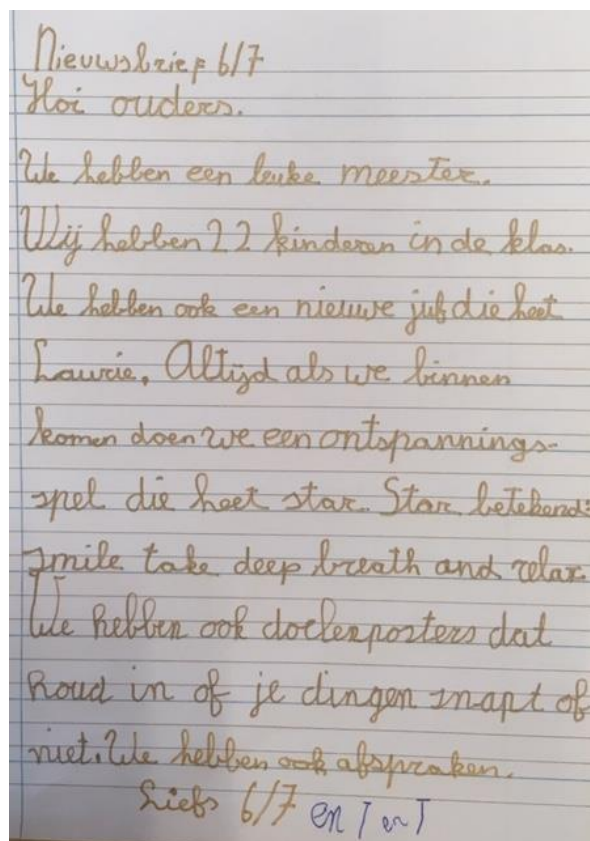 Nieuwsbrief 6/7
Hoi ouders.
We hebben een leuke meester.
Wij hebben 22 kinderen in de klas.
We hebben ook een nieuwe juf die heet
Laurie. Altijd als we binnen
komen doen we een ontspannings-
spel die heet star. Star betekend:
smile take deep breath and relax.
We hebben ook doelenposters dat
houd in of je dingen snapt of
niet. We hebben ook afspraken.
Liefs 6/7 en T en T